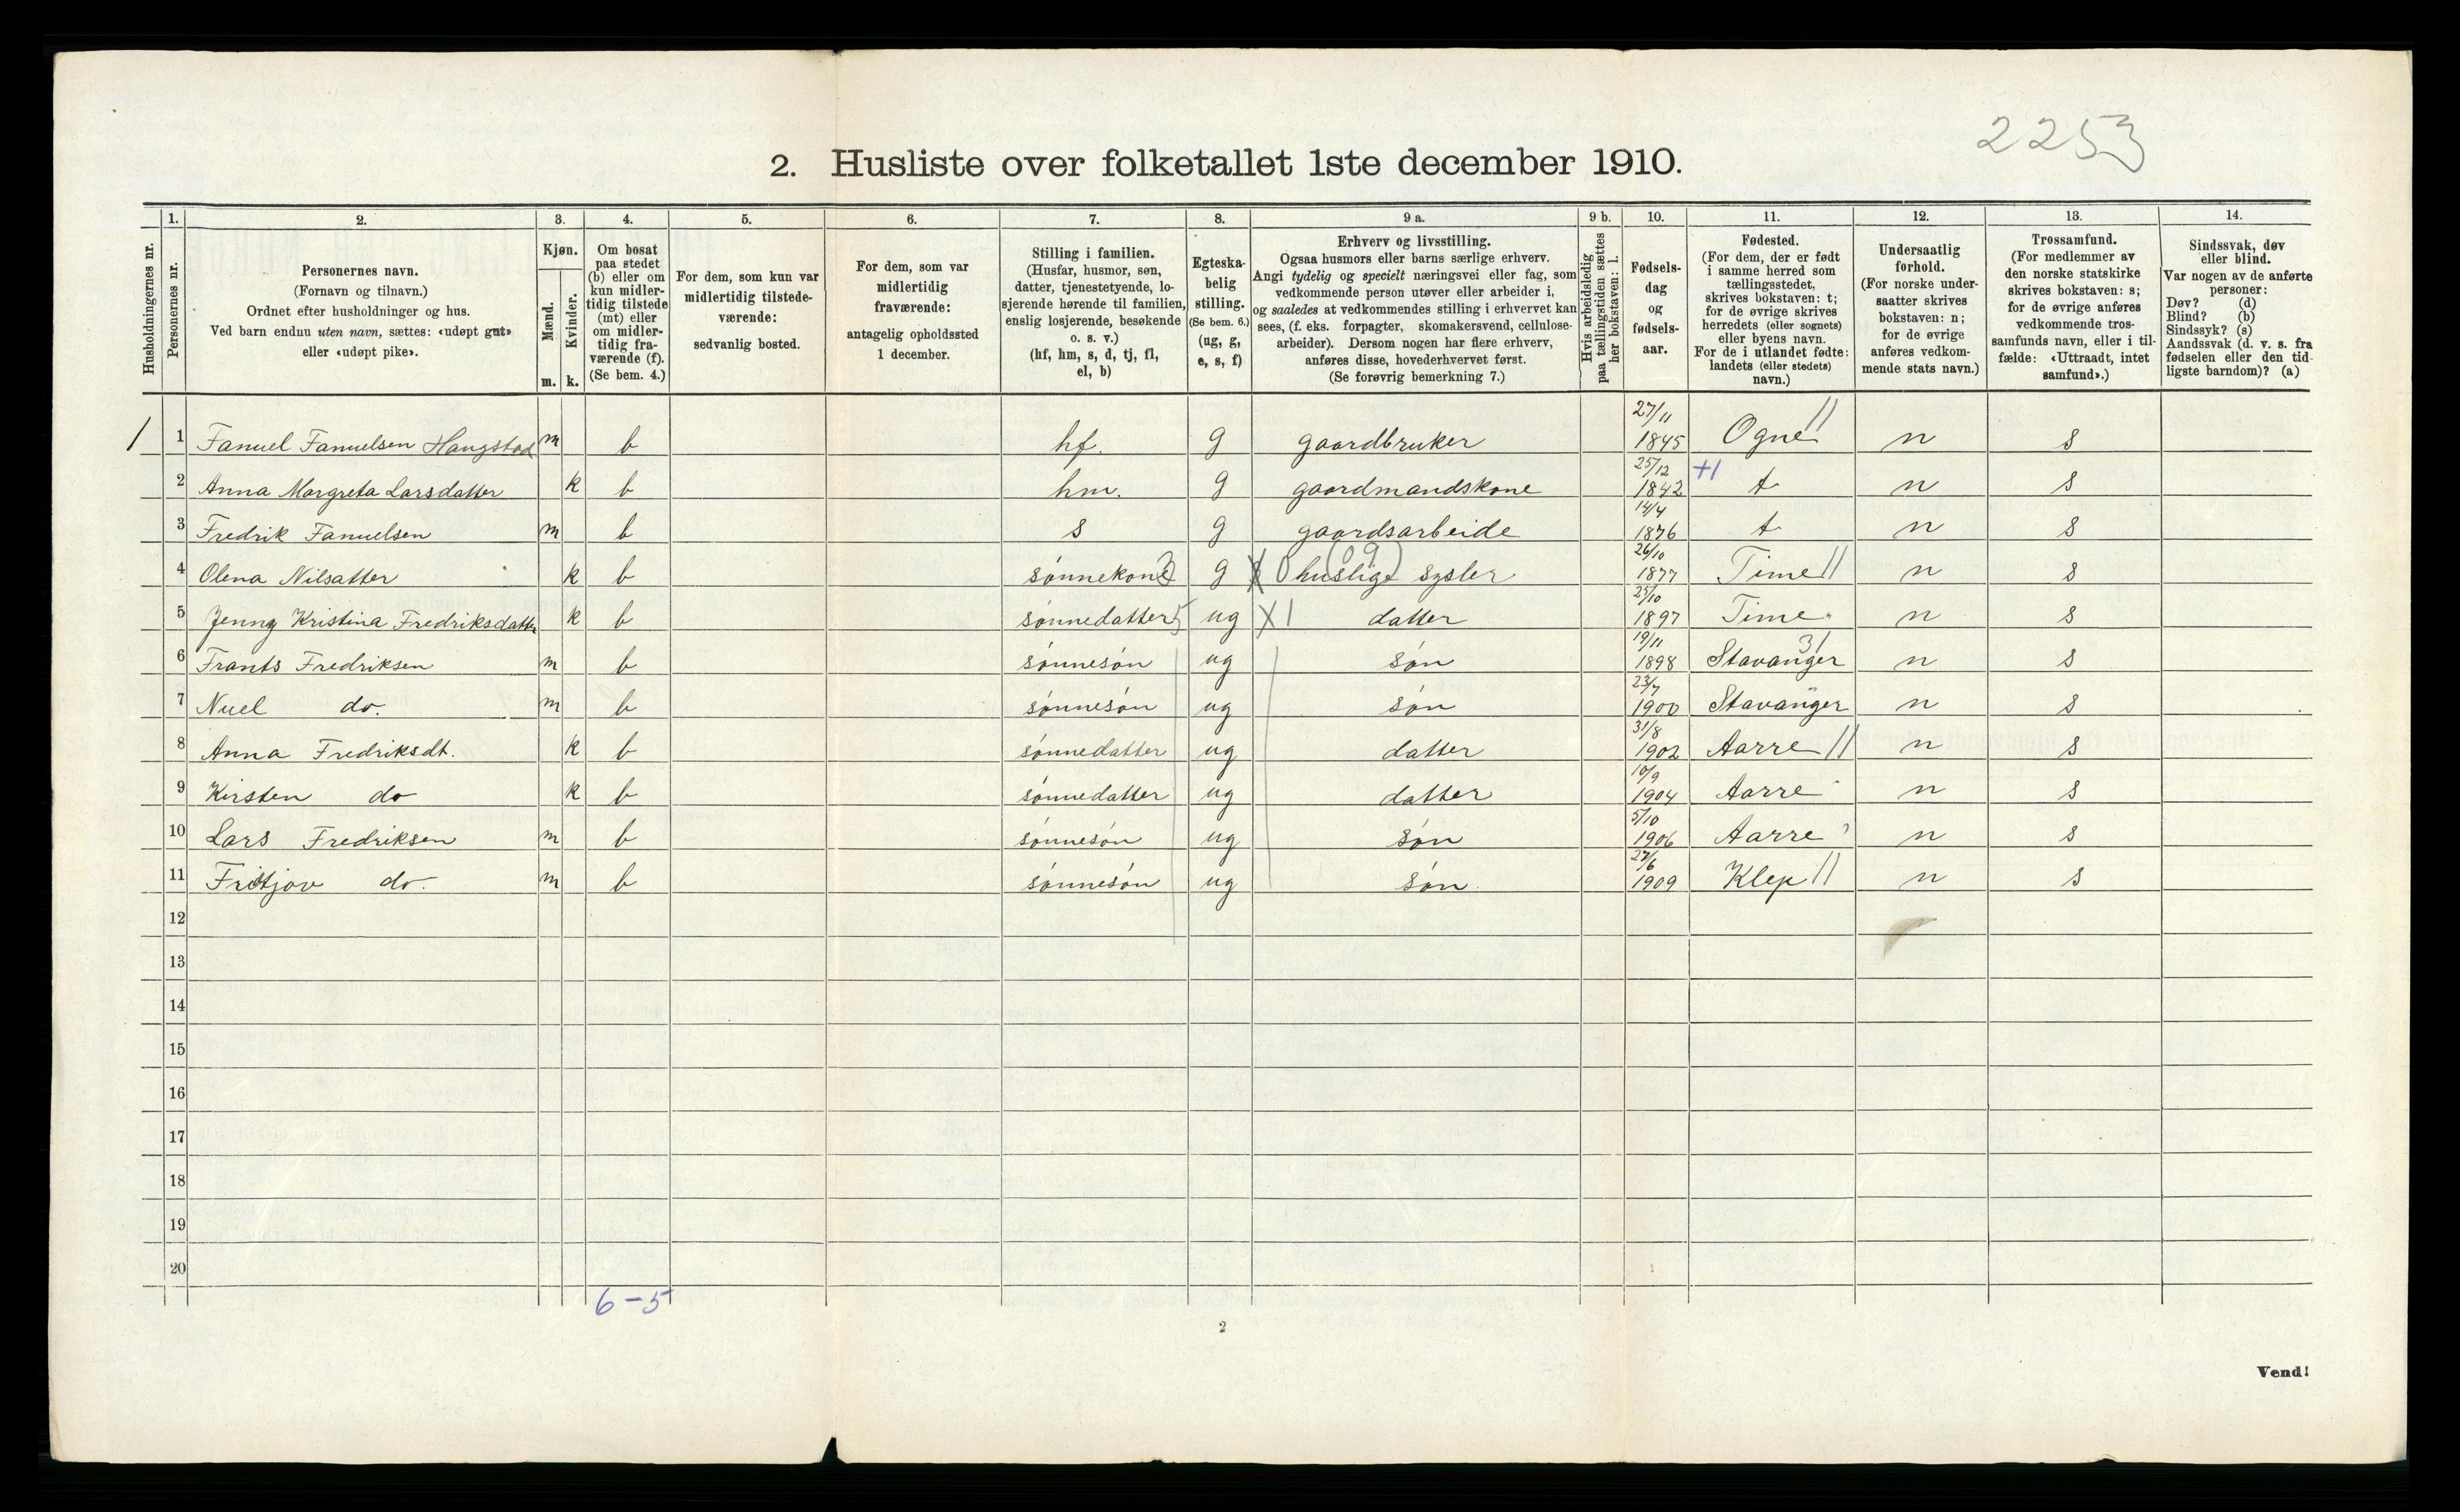 2253
2. Husliste over folketallet 1ste december 1910.
Husholdningernes nr.
1.
Personernes nr.
2.
Personernes navn.
(Fornavn og tilnavn.)
Ordnet efter husholdninger og hus.
Ved barn endnu uten navn, sættes: «udøpt gut»
eller «udøpt pike».
3.
Kjøn.
Mænd.
Kvinder.
m. k.
4.
Om bosat
paa stedet
(b) eller om
kun midler-
tidig tilstede
(mt) eller
om midler-
tidig fra-
værende (f).
(Se bem. 4.)
5.
For dem, som kun var
midlertidig tilstede-
værende:
sedvanlig bosted.
6.
For dem, som var
midlertidig
fraværende:
antagelig opholdssted
1 december.
7.
Stilling i familien.
(Husfar, husmor, søn,
datter, tjenestetyende, lo-
sjerende hørende til familien,
enslig losjerende, besøkende
o. s. v.)
(hf, hm, s, d, tj, fl,
el, b)
8.
Egteska-
belig
stilling.
(Se bem. 6.)
(ug, g,
e, s, f)
9 a.
Erhverv og livsstilling.
Ogsaa husmors eller barns særlige erhverv.
Angi tydelig og specielt næringsvei eller fag, som
vedkommende person utøver eller arbeider i,
og saaledes at vedkommendes stilling i erhvervet kan
sees, (f. eks. forpagter, skomakersvend, cellulose-
arbeider). Dersom nogen har flere erhverv,
anføres disse, hovederhvervet først.
(Se forøvrig bemerkning 7.)
9 b.
Hvis arbeidsledig
paa tællingstiden sættes
her bokstaven: l.
10.
Fødsels-
dag
og
fødsels-
aar.
11.
Fødested.
(For dem, der er født
i samme herred som
tællingsstedet,
skrives bokstaven: t;
for de øvrige skrives
herredets (eller sognets)
eller byens navn.
For de i utlandet fødte:
landets (eller stedets)
navn.)
12.
Undersaatlig
forhold.
(For norske under-
saatter skrives
bokstaven: n;
for de øvrige
anføres vedkom-
mende stats navn.)
13.
Trossamfund.
(For medlemmer av
den norske statskirke
skrives bokstaven: s;
for de øvrige anføres
vedkommende tros-
samfunds navn, eller i til-
fælde: «Uttraadt, intet
samfund».)
14.
Sindssvak, døv
eller blind.
Var nogen av de anførte
personer:
Døv? (d)
Blind? (b)
Sindssyk? (s)
Aandssvak (d. v. s. fra
fødselen eller den tid-
ligste barndom)? (a)
1 1 Fanuel Fanuelsen Haugstad m b hf. g gaardbruker 27/11 1845 Ogne // n s
2 Anna Margreta Larsdatter k b hm. g gaardmandskone 25/12 1842 +1 t n s
3 Fredrik Fanuelsen m b s g gaardsarbeide 14/4 1876 t n s
4 Olena Nilsatter k b sønnekone g X 0 huslige sysler (09) 26/10 1877 Time // n s
5 Jenny Kristina Fredriksdatter k b sønnedatter 5 ug X 1 datter 25/10 1897 Time n s
6 Frants Fredriksen m b sønnesøn ug søn 19/11 1898 Stavanger 31 n s
7 Nuel do. m b sønnesøn ug søn 23/7 1900 Stavanger n s
8 Anna Fredriksdt. k b sønnedatter ug datter 31/8 1902 Aarre // n s
9 Kirsten do k b sønnedatter ug datter 10/9 1904 Aarre n s
10 Lars Fredriksen m b sønnesøn ug søn 5/10 1906 Aarre n s
11 Fritjov do. m b sønnesøn ug søn. 27/6 1909 Klep // n s
12
13
14
15
16
17
18
19
20
6-5
2
Vend!